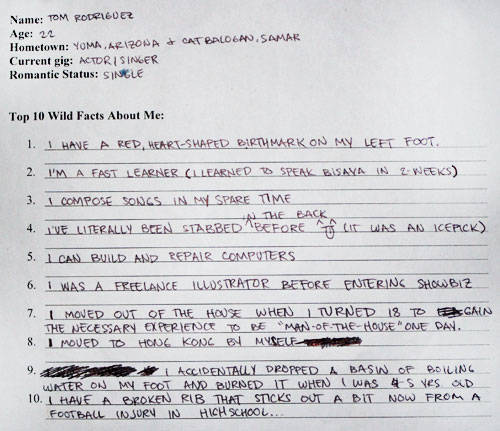 Name: TOM RODRIGUEZ
Age: 22
Hometown: YUMA, ARIZONA & CATBALOGAN, SAMAR
Current gig: ACTOR / SINGER
Romantic Status: SINGLE
Top 10 Wild Facts About Me:
1. I HAVE A RED, HEART-SHAPED BIRTHMARK ON MY LEFT FOOT.
2. I'M A FAST LEARNER (I LEARNED TO SPEAK BISAYA IN 2-WEEKS)
3. I COMPOSE SONGS IN MY SPARE TIME
4. I'VE LITERALLY BEEN STABBED IN THE BACK BEFORE (IT WAS AN ICEPICK)
5. I CAN BUILD AND REPAIR COMPUTERS
6. I WAS A FREELANCE ILLUSTRATOR BEFORE ENTERING SHOWBIZ
7. I MOVED OUT OF THE HOUSE WHEN I TURNED 18 TO GAIN
THE NECESSARY EXPERIENCE TO BE "MAN-OF-THE-HOUSE" ONE DAY.
8. I MOVED TO HONG KONG BY MYSELF
9. I ACCIDENTALLY DROPPED A BASIN OF BOILING
WATER ON MY FOOT AND BURNED IT WHEN I WAS 4-5 YRS OLD
10. I HAVE A BROKEN RIB THAT STICKS OUT A BIT NOW FROM A
FOOTBALL INJURY IN HIGHSCHOOL...